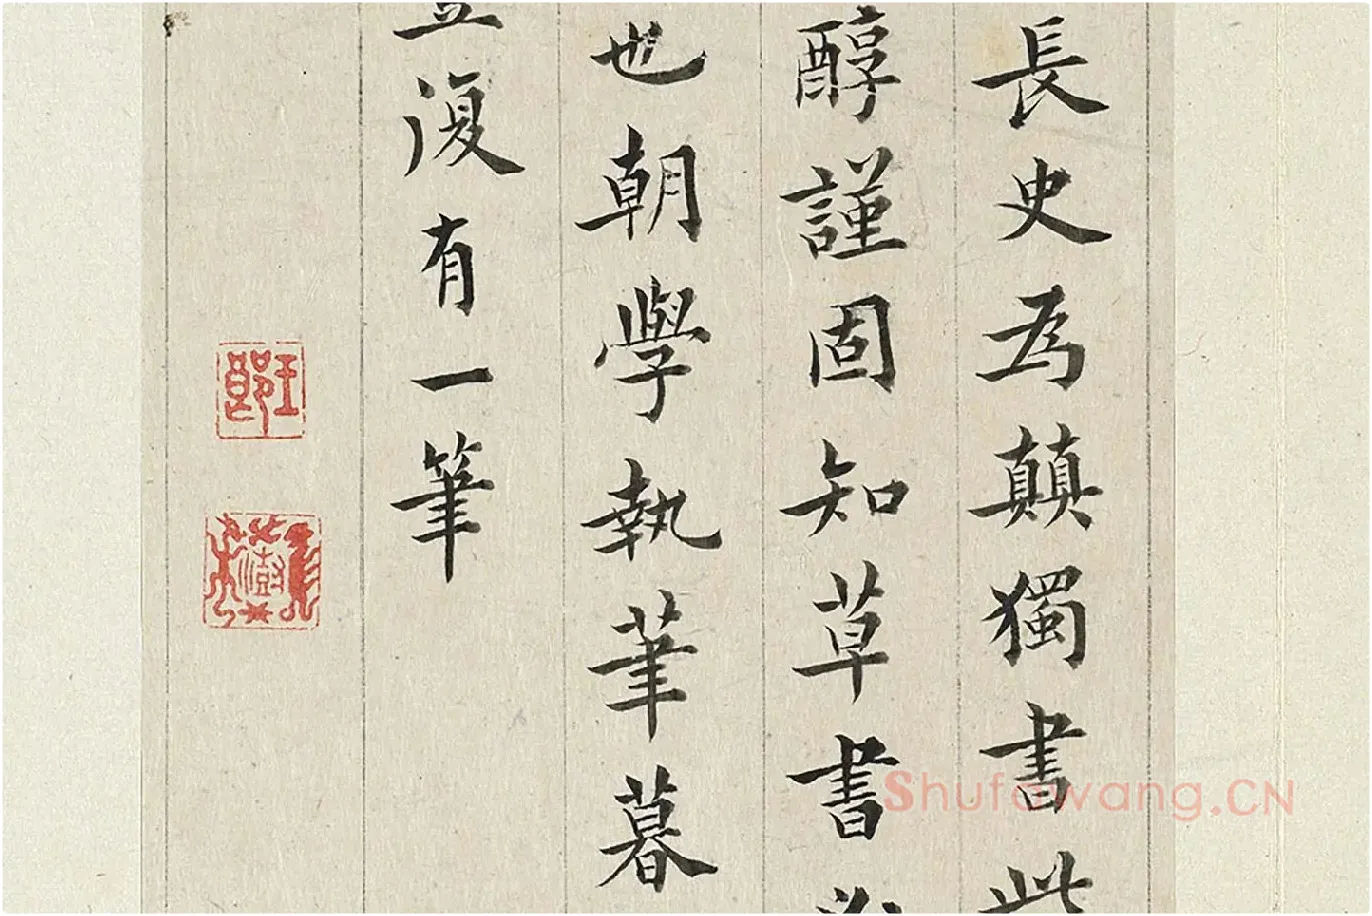 長史為顛獨書此
醇謹固知草書
也朝學執筆暮
復有一筆
Shufawang.CN